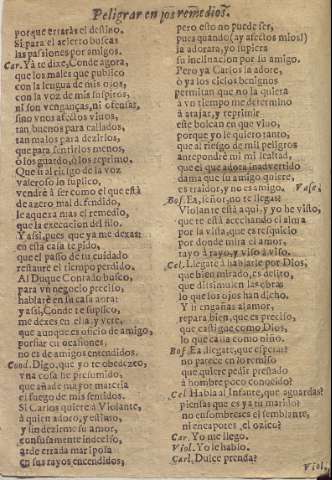 Peligrar en los remedios.
porque errarás el destino,
Si para el acierto buscas
las passiones por amigos.
Car. Yà te dixe, Conde agora,
que los males que publico
con la lengua de mis ojos,
con la voz de mis suspiros,
ni son venganças, ni ofensas,
sino vnos afectos viuos,
tan buenos para callados,
tan malos para dezirlos,
que para sentirlos menos,
ò los guardo, ò los reprimo.
Que si al riesgo de la voz
valeroso in suplico,
vendrè à ser como el que està
de azero mal defendido,
le aquexa mas el remedio,
que la execucion del filo.
Y assi, pues que ya me dexas
en esta casa te pido,
que el passo de tu cuidado
restaure el tiempo perdido.
Al Duque Conrado busco,
para vn negocio preciso,
hablarè en su casa aora:
y assi, Conde te suplico,
me dexes en ella, y vete,
que aunque es oficio de amigo,
porfiar en ocasiones,
no es de amigos entendidos.
Cond. Digo, que yo te obedezco,
y na cosa he presumido,
que añade mayor materia
el fuego de mis sentidos.
Si Carlos quiere à Violante,
à quien adoro, y estimo,
y sin dezirme su amor,
confusamente indeciso,
arde errada mariposa
en sus rayos encendidos,
pero esto no puede ser,
pues quando (ay afectos mios!)
la adorara, yo supiera
su inclinacion por su amigo.
Pero ya Carlos la adore,
ò ya los cielos benignos
permitan que no la quiera
à vn tiempo me determino
à atajar, y reprimir
este bolcan en que viuo,
porque yo le quiero tanto,
que al riesgo de mil peligros
antepondrè mi mi lealtad,
que el que adora inaduertido
dama que su amigo quiere,
es traidor, y no es amigo. Vase,
Bof. Ea, señor, no te llegas?
Violante està aqui, y yo he visto,
que te està acechando el alma
por la vista, que es resquicio
por donde mira el amor,
rayo à rayo, y viso à viso.
Cel. Llegate à hablarle por Dios,
que bien mirado, es delito,
que dissimulen las obras
lo que los ojos han dicho.
Y si engañas al amor,
repara bien, que es preciso,
que castigue como Dios,
lo que calla como niño.
Bof. Ea llegate, que esperas?
no parece en lo remiso
que quiere pedir prestado
à hombre poco conocido?
Cel. Habla al Infante, que aguardas?
piensas que es ya tu marido?
no ensombrezcas el semblante,
ni encapotes, el ozico?
Car. Yo me llego.
Viol. Yo le hablo.
Carl. Dulce prenda?
Viol.